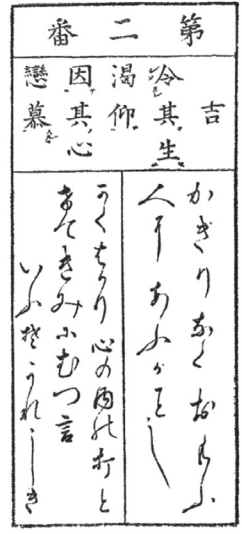 第二番
吉
冷其生
渇仰
因其心
戀慕
かぎりなくおもふ
人にあふがごとし
かくばかり心の内の打と
けてきみにむつ言
いふぞうれしき